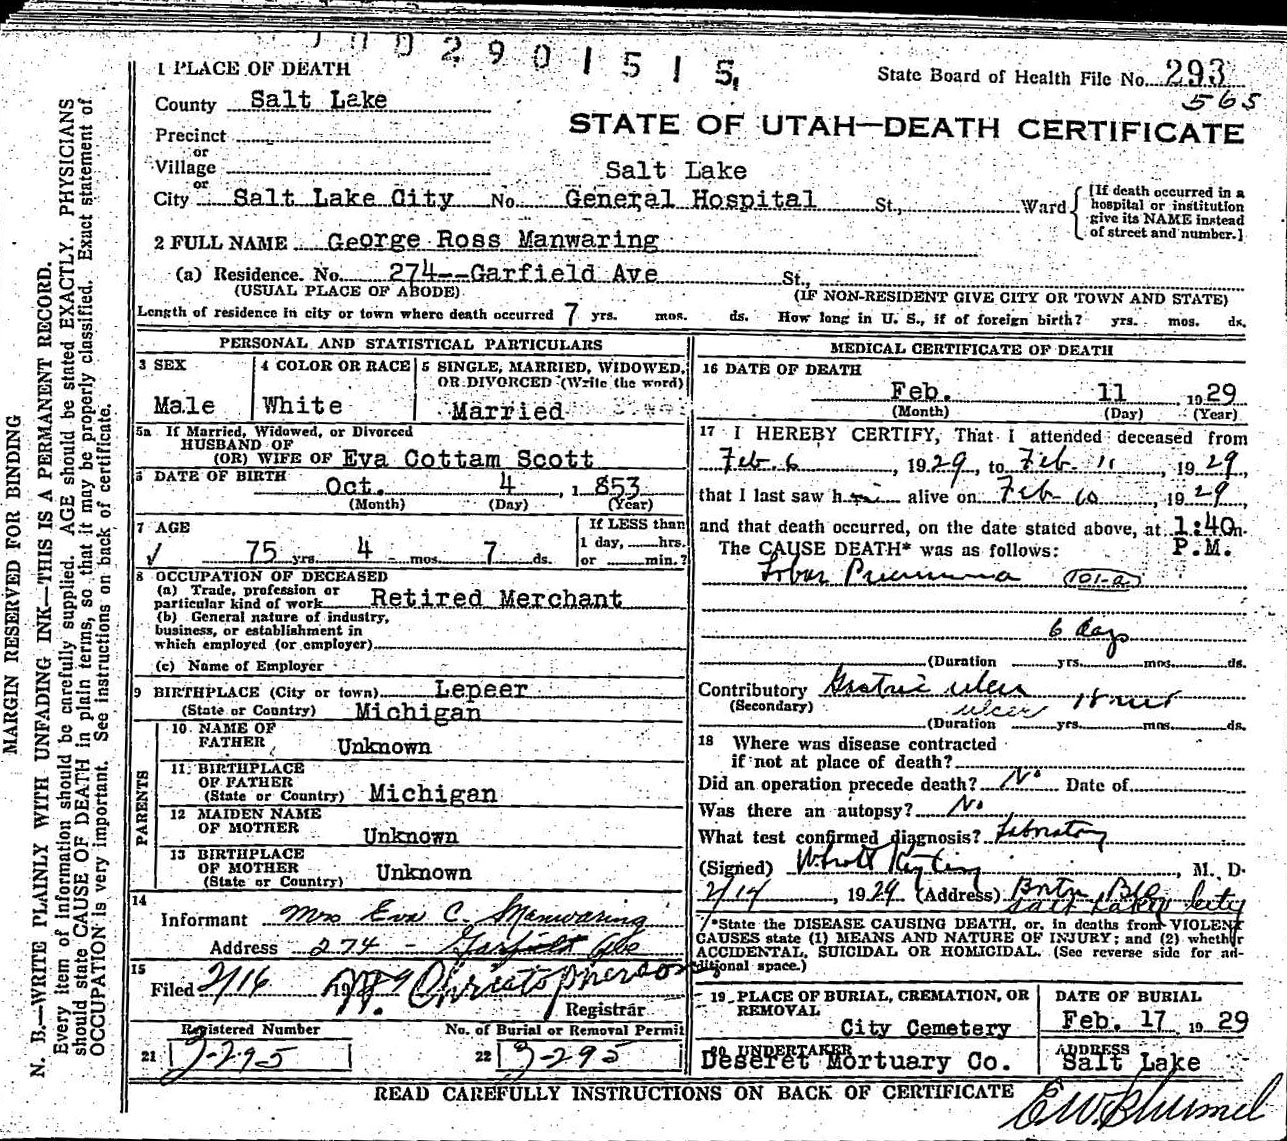 2 9 0 1 5 1 5
1 PLACE OF DEATH
State Board of Health File No. 293
565
County Salt Lake
STATE OF UTAH—DEATH CERTIFICATE
Precinct
or
Village
Salt Lake
or
City Salt Lake City No. General Hospital St., Ward
[If death occurred in a
hospital or institution
give its NAME instead
of street and number.]
2 FULL NAME George Ross Manwaring
(a) Residence. No. 274--Garfield Ave St.,
(USUAL PLACE OF ABODE)
(IF NON-RESIDENT GIVE CITY OR TOWN AND STATE)
Length of residence in city or town where death occurred 7 yrs. mos. ds. How long in U. S., if of foreign birth? yrs. mos. ds.
PERSONAL AND STATISTICAL PARTICULARS
3 SEX
Male
4 COLOR OR RACE
White
5 SINGLE, MARRIED, WIDOWED,
OR DIVORCED (Write the word)
Married
5a If Married, Widowed, or Divorced
HUSBAND OF
(OR) WIFE OF Eva Cottam Scott
6 DATE OF BIRTH
Oct. 4, 1853
(Month) (Day) (Year)
7 AGE
75 yrs. 4 mos. 7 ds.
If LESS than
1 day, hrs.
or min.?
8 OCCUPATION OF DECEASED
(a) Trade, profession or
particular kind of work Retired Merchant
(b) General nature of industry,
business, or establishment in
which employed (or employer)
(c) Name of Employer
9 BIRTHPLACE (City or town) Lepeer
(State or Country) Michigan
PARENTS
10 NAME OF
FATHER Unknown
11 BIRTHPLACE
OF FATHER
(State or Country) Michigan
12 MAIDEN NAME
OF MOTHER Unknown
13 BIRTHPLACE
OF MOTHER
(State or Country) Unknown
14
Informant Mrs Eva C. Manwaring
Address 274 - Garfield Ave
15
Filed 2/16 19 Christopherson
Registrar
Registered Number
21 3-295
No. of Burial or Removal Permit
22 3-295
MEDICAL CERTIFICATE OF DEATH
16 DATE OF DEATH
Feb. 11 1929
(Month) (Day) (Year)
17 I HEREBY CERTIFY, That I attended deceased from
Feb. 6, 1929, to Feb. 11, 1929,
that I last saw him alive on Feb 10, 1929
and that death occurred, on the date stated above, at 1:40 m.
P.M.
The CAUSE DEATH* was as follows:
Lobar Pneumonia 101-a
6 days
(Duration yrs. mos. ds.
Contributory Gastric ulcer
(Secondary) ulcer
(Duration yrs. mos. ds.
18 Where was disease contracted
if not at place of death?
Did an operation precede death? No Date of
Was there an autopsy? No
What test confirmed diagnosis? Laboratory
(Signed) , M. D.
2/14, 1929 (Address)
Salt Lake City
*State the DISEASE CAUSING DEATH, or, in deaths from VIOLENT
CAUSES state (1) MEANS AND NATURE OF INJURY; and (2) whether
ACCIDENTAL, SUICIDAL OR HOMICIDAL. (See reverse side for ad-
ditional space.)
19 PLACE OF BURIAL, CREMATION, OR
REMOVAL
City Cemetery
DATE OF BURIAL
Feb. 17 1929
20 UNDERTAKER
Deseret Mortuary Co.
ADDRESS
Salt Lake
READ CAREFULLY INSTRUCTIONS ON BACK OF CERTIFICATE
MARGIN RESERVED FOR BINDING
N. B.—WRITE PLAINLY WITH UNFADING INK—THIS IS A PERMANENT RECORD.
Every item of information should be carefully supplied. AGE should be stated EXACTLY. PHYSICIANS
should state CAUSE OF DEATH in plain terms, so that it may be properly classified. Exact statement of
OCCUPATION is very important. See instructions on back of certificate.